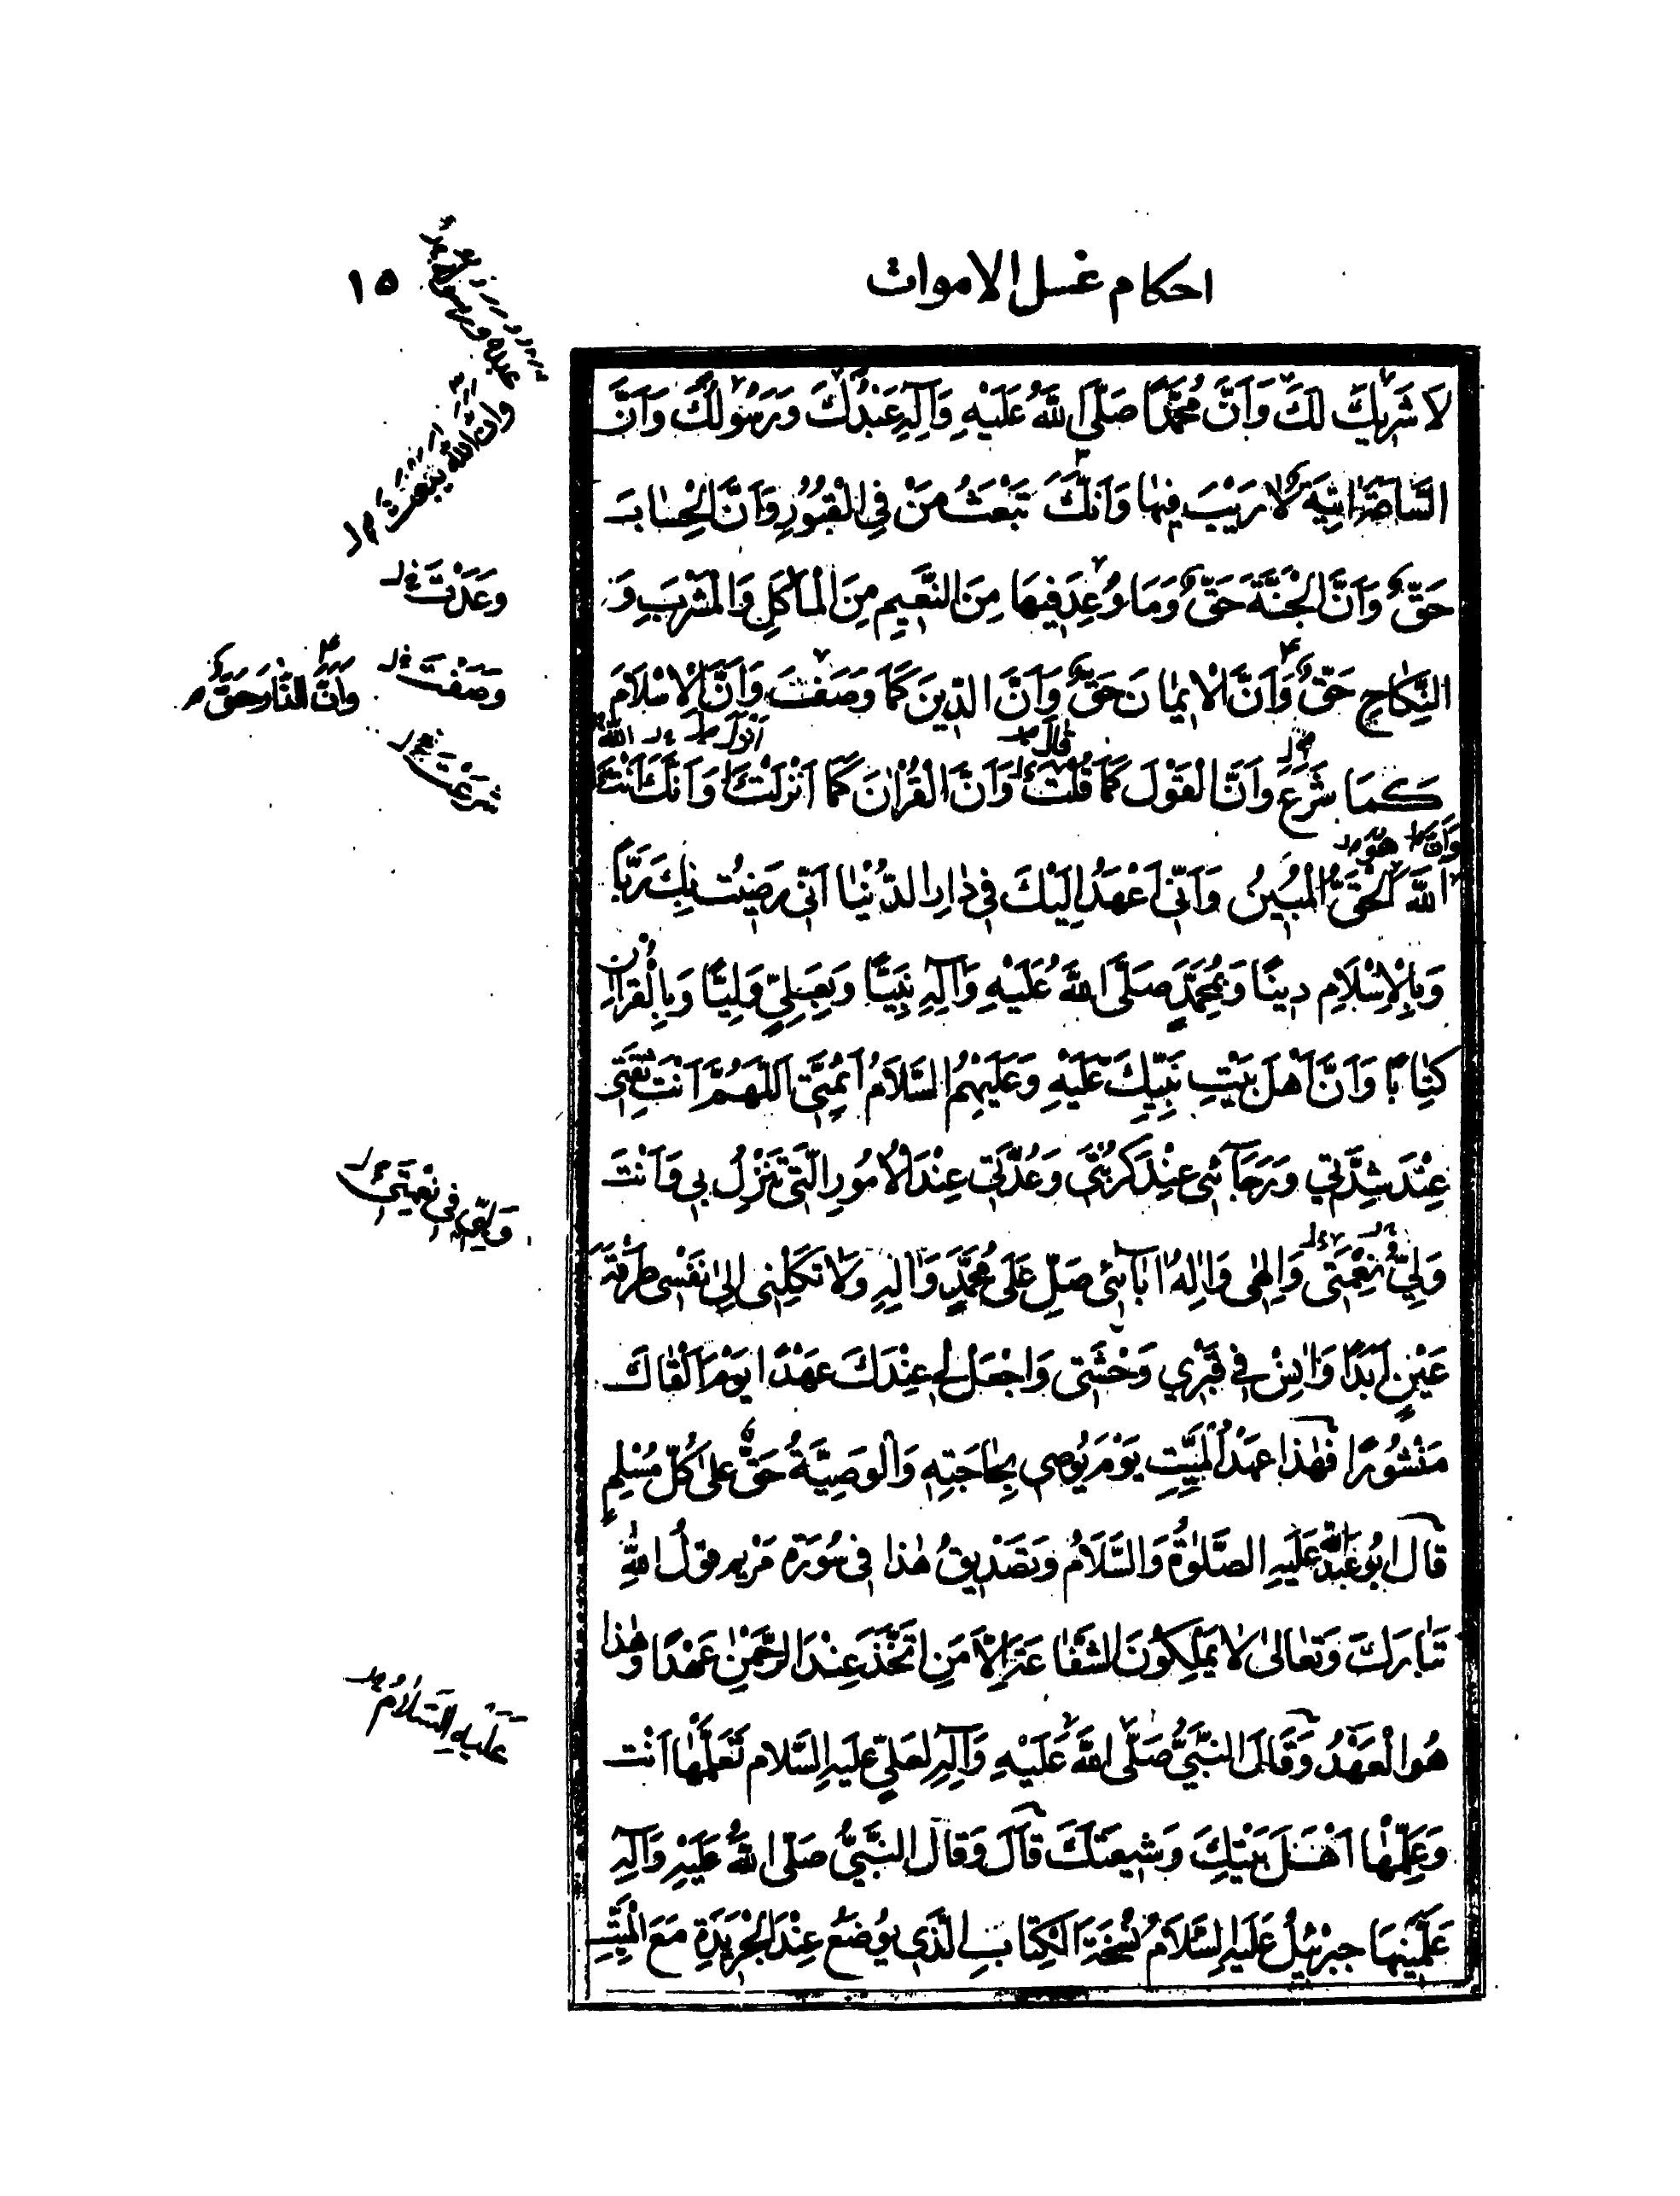 احكام غسل الاموات
١٥
لَا شَرِيكَ لَكَ وَاَنَّ مُحَمَّدًا صَلَّى اللهُ عَلَيْهِ وَآلِهِ عَبْدُكَ وَرَسُولُكَ وَاَنَّ
السَّاعَةَ اتِيَةٌ لَا رَيْبَ فِيهَا وَاَنَّكَ تَبْعَثُ مَنْ فِي الْقُبُورِ وَاَنَّ الْحِسَابَ
حَقٌّ وَاَنَّ الْجَنَّةَ حَقٌّ وَمَا وُعِدَ فِيهَا مِنَ النَّعِيمِ مِنَ الْمَأْكَلِ وَالْمَشْرَبِ وَ
النِّكَاحِ حَقٌّ وَاَنَّ الْاِيمَانَ حَقٌّ وَاَنَّ الدِّينَ كَمَا وَصَفْتَ وَاَنَّ الْاِسْلَامَ
كَمَا شَرَعَ وَاَنَّ الْقَوْلَ كَمَا قُلْتَ وَاَنَّ الْقُرْانَ كَمَا اَنْزَلْتَ وَاَنَّكَ اَنْتَ
اللهُ الْحَقُّ الْمُبِينُ وَاَنِّي اَعْهَدُ اِلَيْكَ فِي دَارِ الدُّنْيَا اَنِّي رَضِيتُ بِكَ رَبًّا
وَبِالْاِسْلَامِ دِينًا وَبِمُحَمَّدٍ صَلَّى اللهُ عَلَيْهِ وَآلِهِ نَبِيًّا وَبِعَلِيٍّ وَلِيًّا وَبِالْقُرْانِ
كِتَابًا وَاَنَّ اَهْلَ بَيْتِ نَبِيِّكَ عَلَيْهِ وَعَلَيْهِمُ السَّلَامُ اَئِمَّتِي اَللّهُمَّ اَنْتَ ثِقَتِي
عِنْدَ شِدَّتِي وَرَجَائِي عِنْدَ كُرْبَتِي وَعُدَّتِي عِنْدَ الْاُمُورِ الَّتِي تَنْزِلُ بِي فَاَنْتَ
وَلِيُّ نِعْمَتِي وَاِلهِي وَاِلهُ ابَائِي صَلِّ عَلَى مُحَمَّدٍ وَالِهِ وَلَا تَكِلْنِي اِلَى نَفْسِي طَرْفَةَ
عَيْنٍ اَبَدًا وَانِسْ فِي قَبْرِي وَحْشَتِي وَاجْعَلْ لِي عِنْدَكَ عَهْدًا يَوْمَ اَلْقَاكَ
مَنْشُورًا فَهذَا عَهْدُ الْمَيِّتِ يَوْمَ يُوصِي بِحَاجَتِهِ وَالْوَصِيَّةُ حَقٌّ عَلَى كُلِّ مُسْلِمٍ
قَالَ اَبُو عَبْدِ اللهِ عَلَيْهِ الصَّلوةُ وَالسَّلَامُ وَتَصْدِيقُ هذَا فِي سُورَةِ مَرْيَم قَوْلُ اللهِ
تَبَارَكَ وَتَعَالَى لَا يَمْلِكُونَ الشَّفَاعَةَ اِلَّا مَنِ اتَّخَذَ عِنْدَ الرَّحْمنِ عَهْدًا وَهذَا
هُوَ الْعَهْدُ وَقَالَ النَّبِيُّ صَلَّى اللهُ عَلَيْهِ وَآلِهِ لِعَلِيٍّ عَلَيْهِ السَّلَام تَعَلَّمْهَا اَنْتَ
وَعَلِّمْهَا اَهْلَ بَيْتِكَ وَشِيعَتَكَ قَالَ وَقَالَ النَّبِيُّ صَلَّى اللهُ عَلَيْهِ وَآلِهِ
عَلَّمَنِيهَا جِبْرَئِيلُ عَلَيْهِ السَّلَامُ نُسْخَةُ الْكِتَابِ الَّذِي يُوضَعُ عِنْدَ الْجَرِيدَةِ مَعَ الْمَيِّتِ
وَاَنَّ اللهَ يَبْعَثُ
وَعَدْتَ
وَصَفْتَ
وَاَنَّ النَّارَ حَقٌّ
شَرَعْتَ
وَلِيِّي فِي نِعْمَتِي
عَلَيْهِ السَّلَامُ